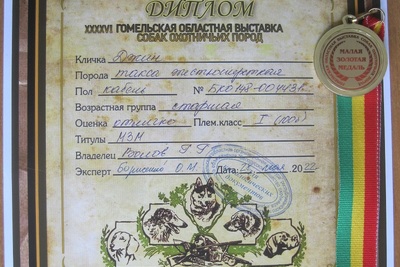 ДИПЛОМ
XXXXVI ГОМЕЛЬСКАЯ ОБЛАСТНАЯ ВЫСТАВКА
СОБАК ОХОТНИЧЬИХ ПОРОД
Кличка Джин
Порода такса жесткошерстная
Пол кобель № БКО
Возрастная группа старшая
Оценка отлично Плем.класс I
Титулы МЗМ
Владелец
Эксперт Борисенко О.М. Дата: мая 2022
МАЛАЯ
ЗОЛОТАЯ
МЕДАЛЬ